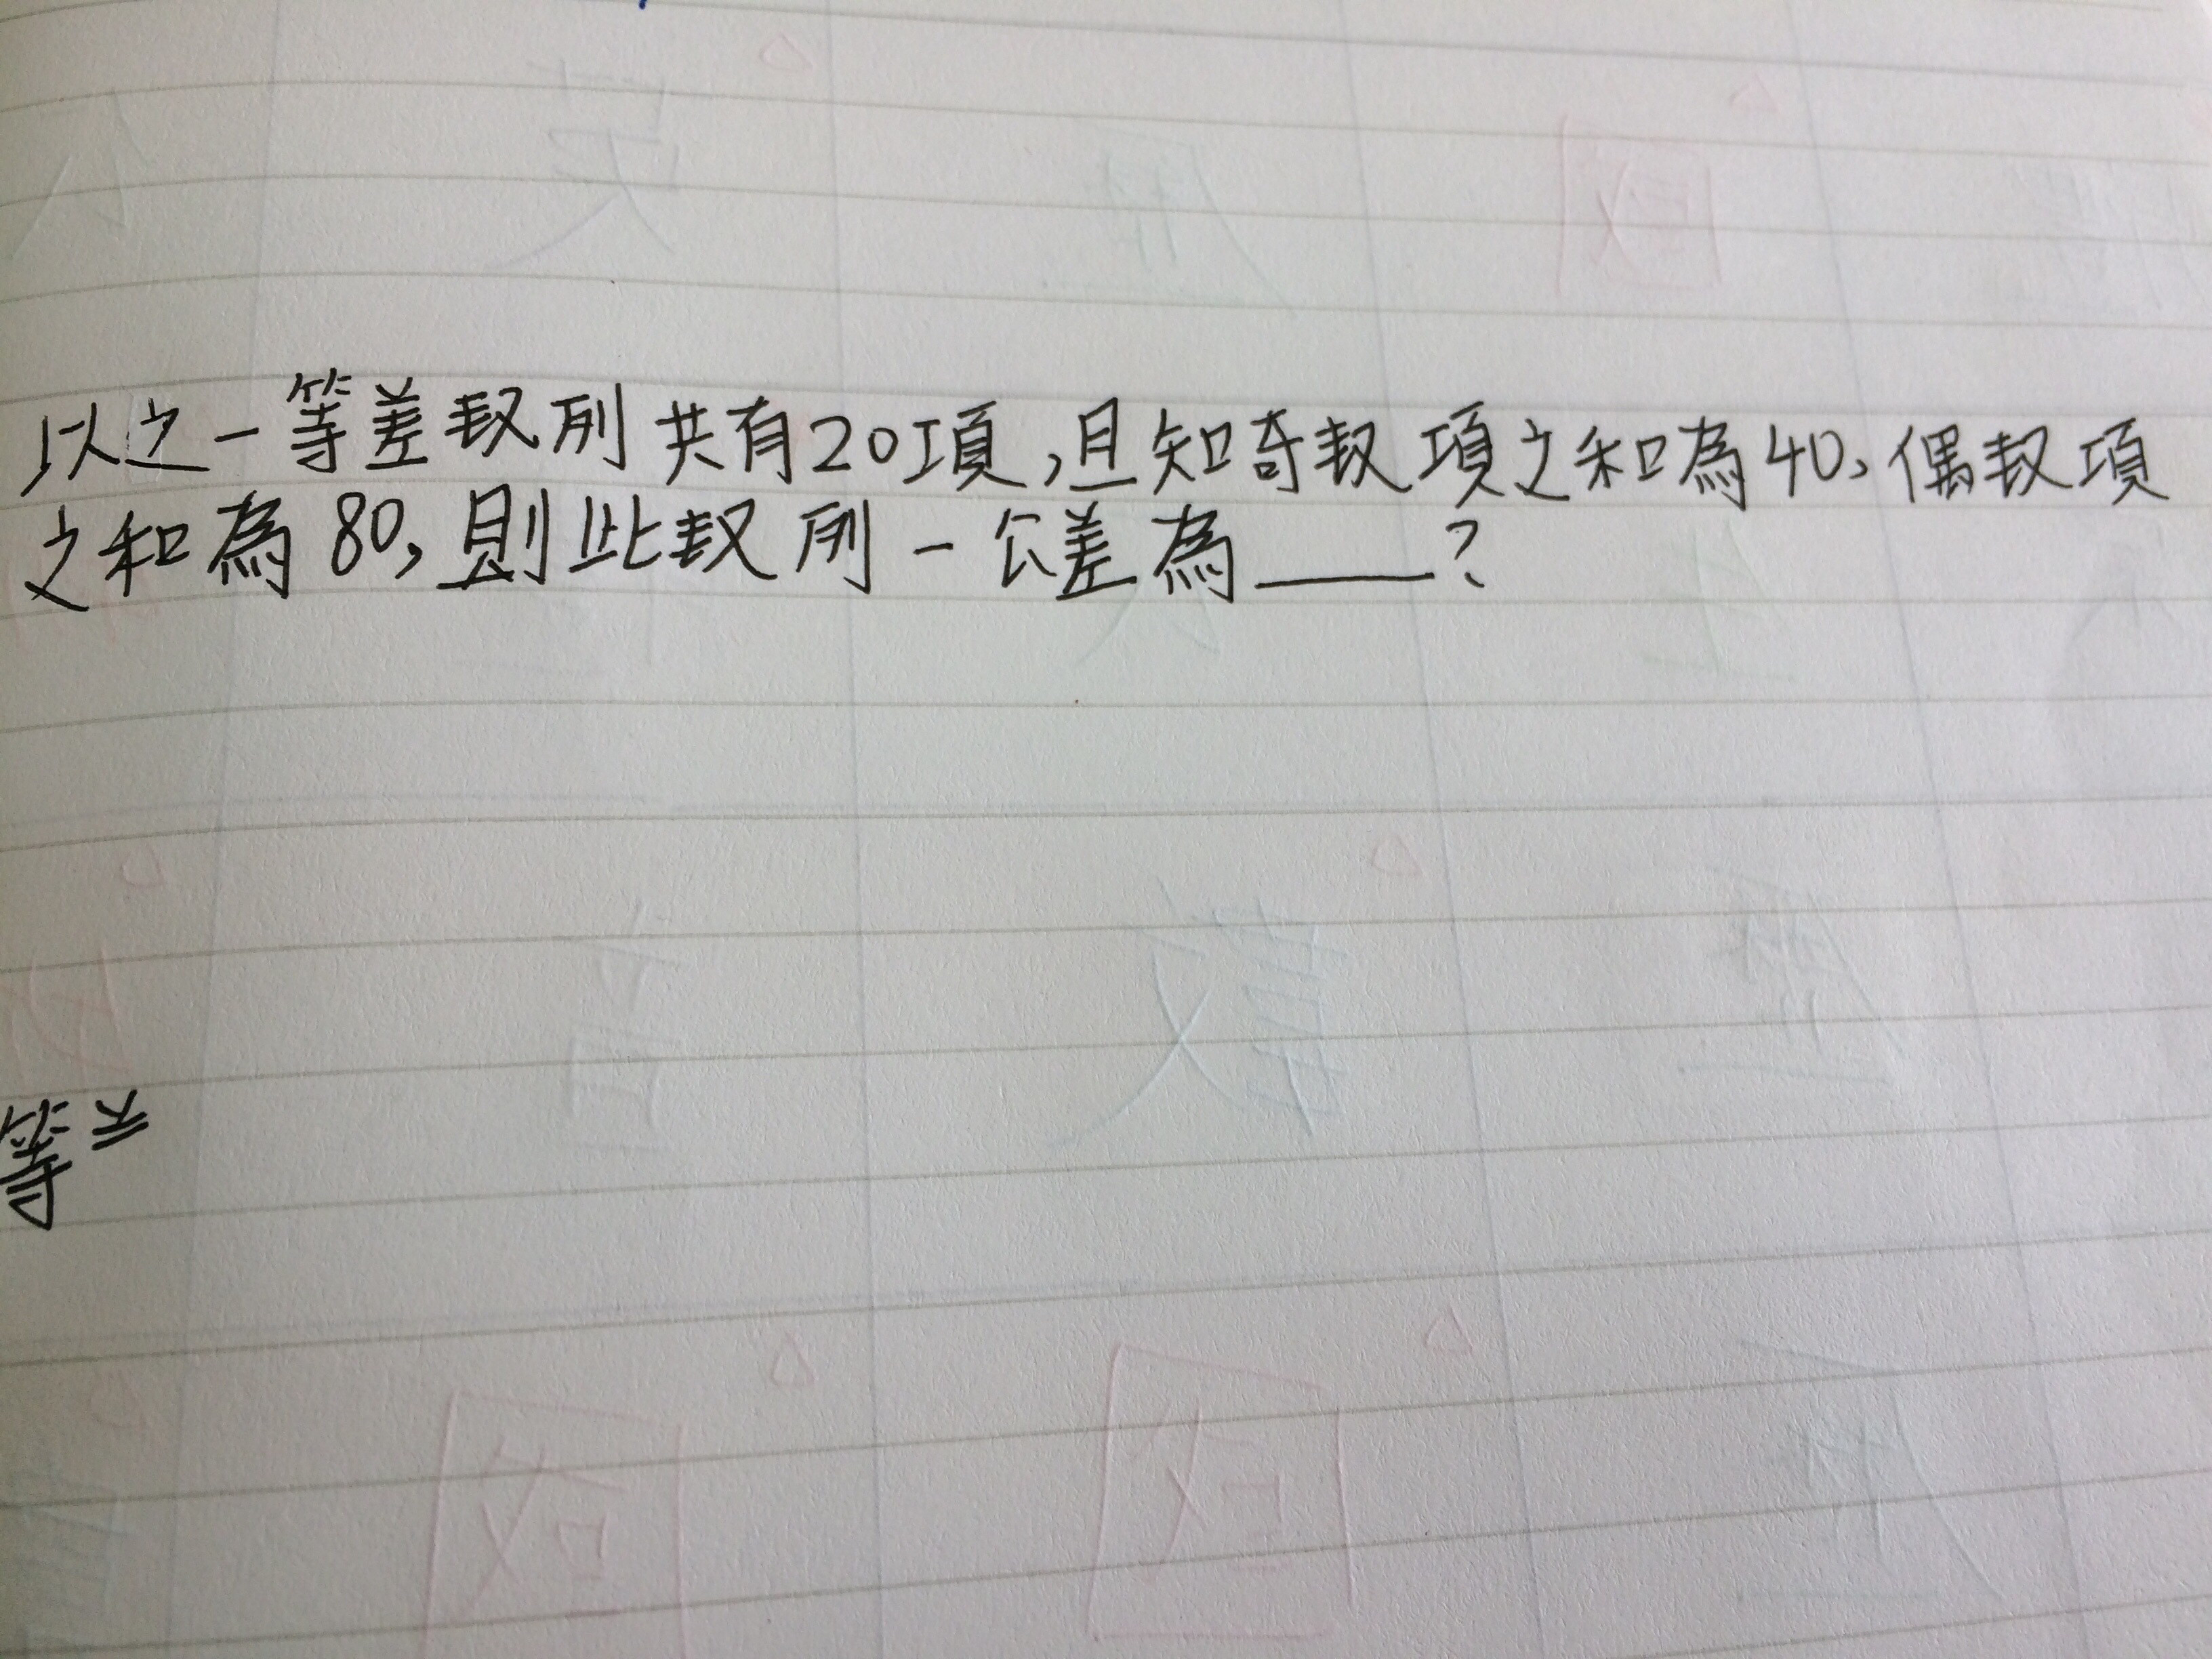 以之一等差数列共有20項,且知奇数項之和為40,偶数項
之和為80,則此数列一公差為____?
等差